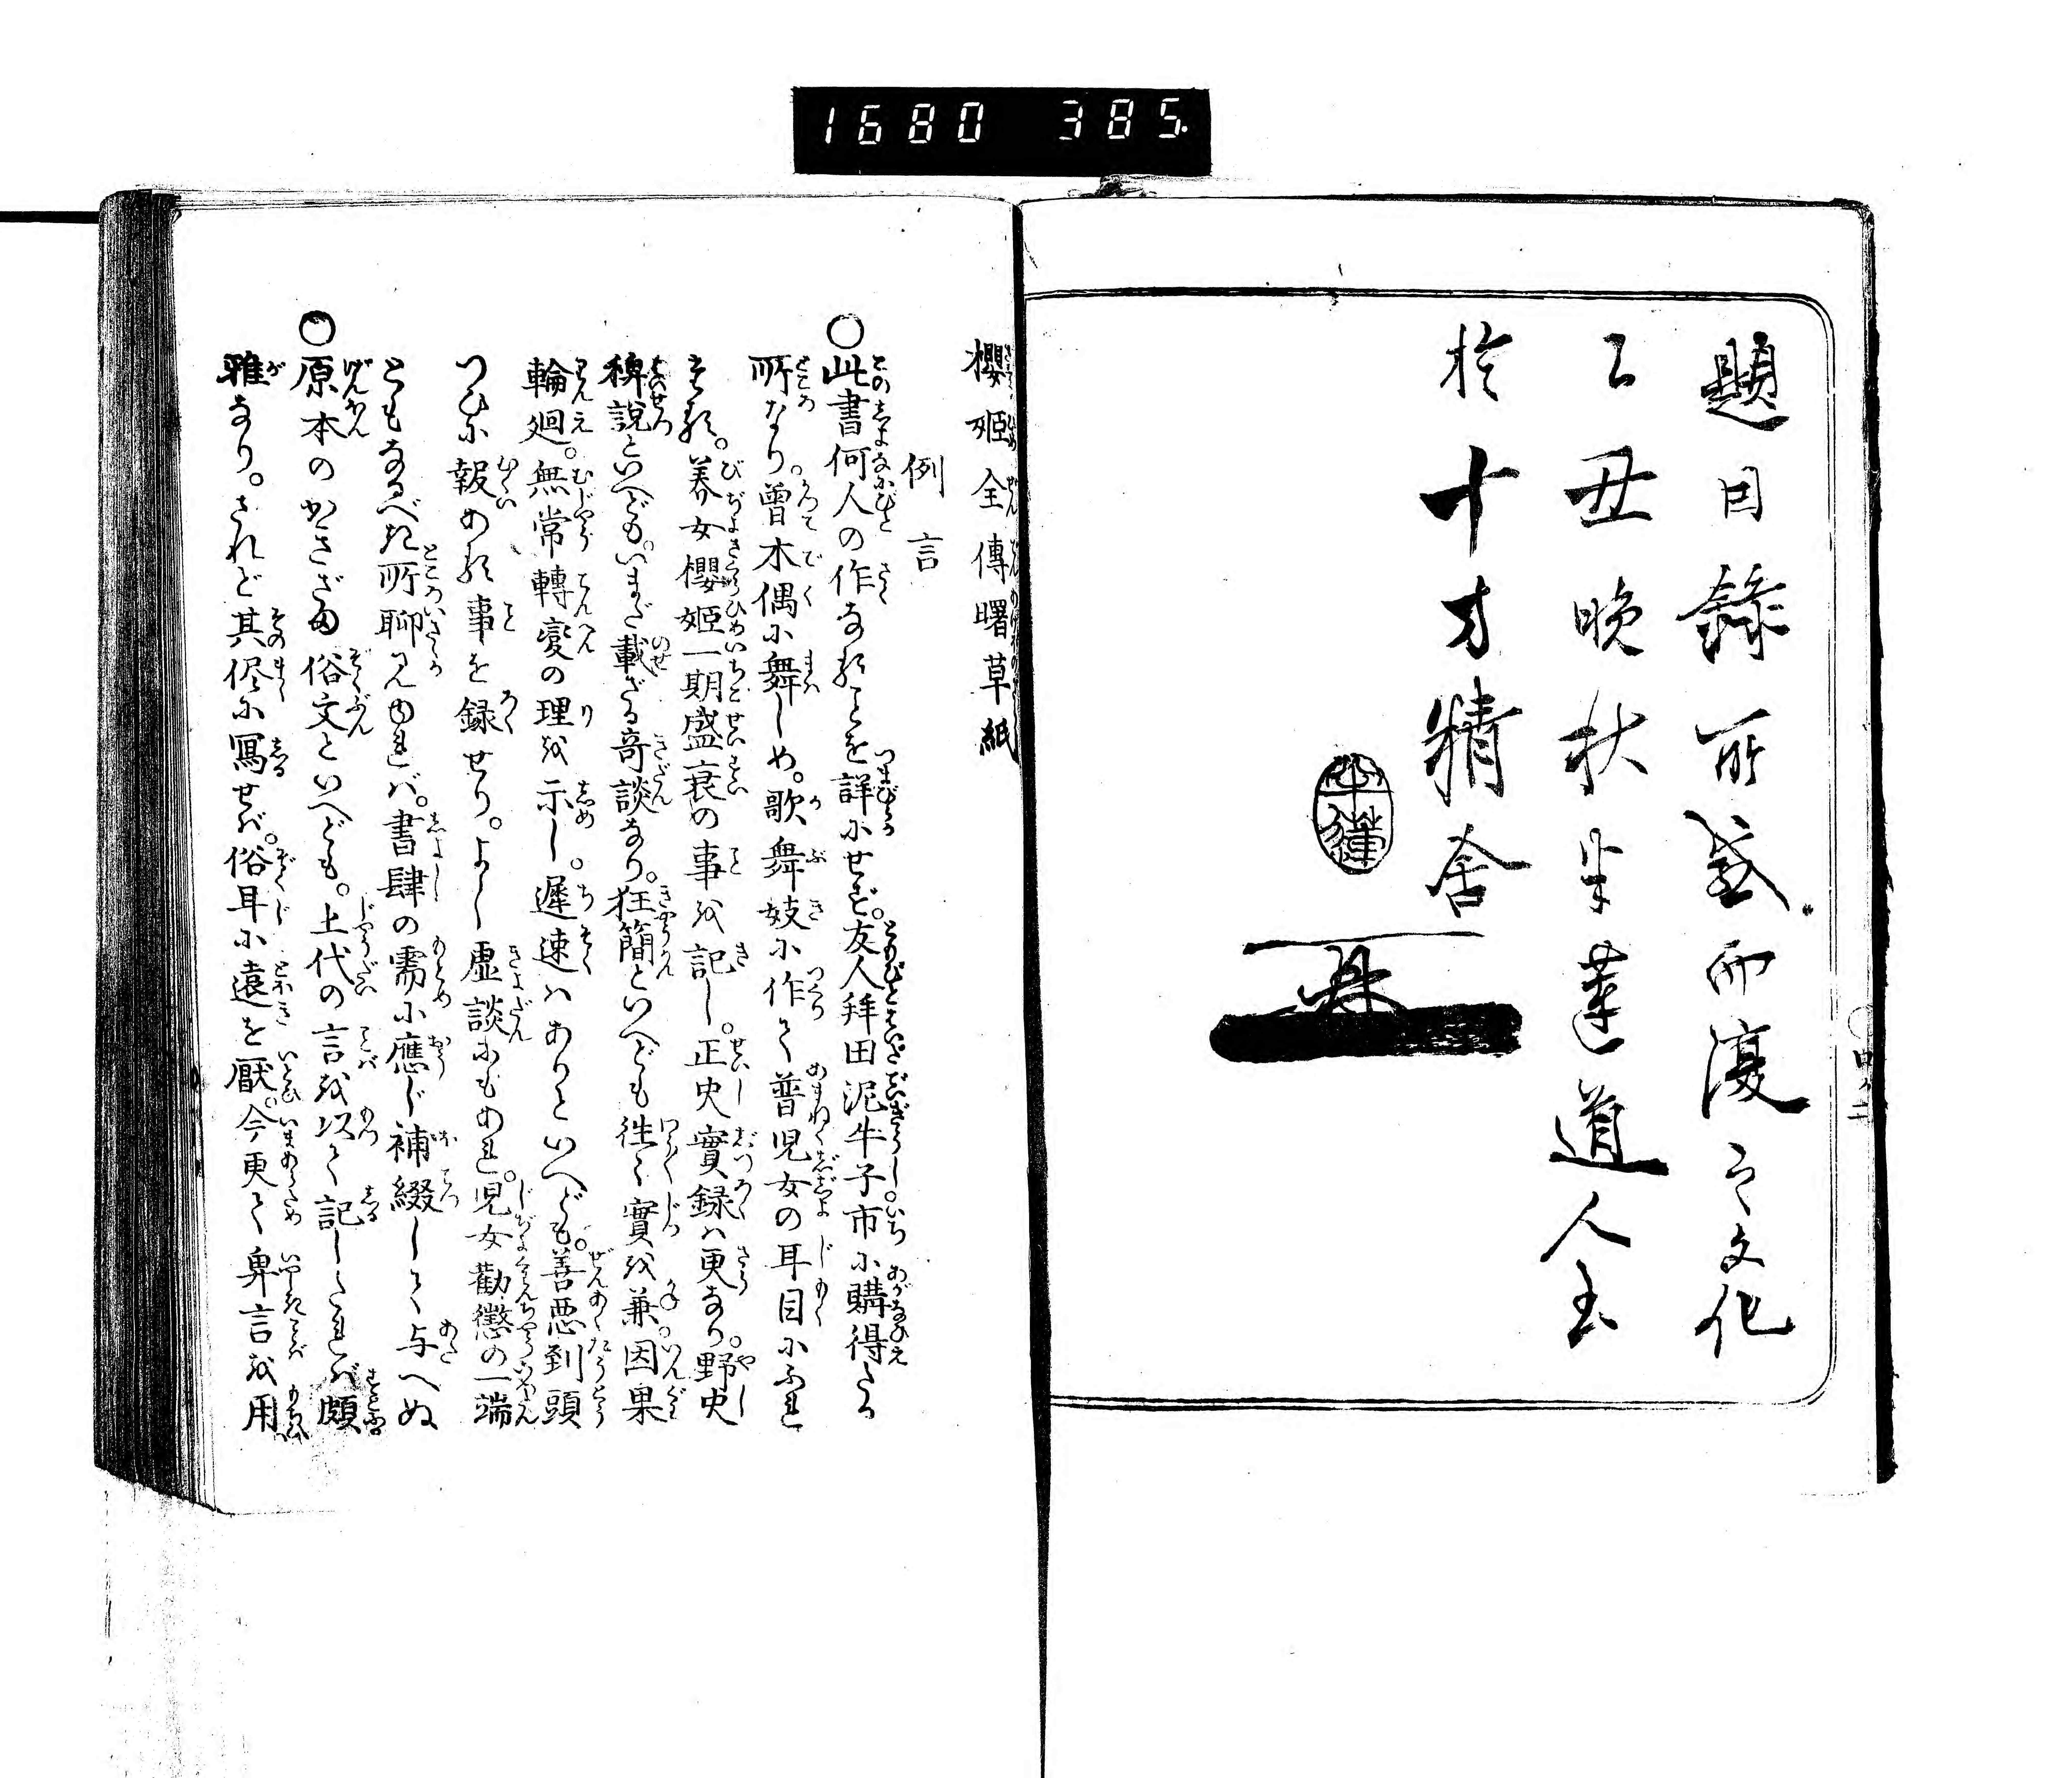 1680 385.
題目錄所盛而復之文化
乙丑晩秋半蓮道人書
於十方精舍
半蓮
櫻姫全傳曙草紙
例言
○此書何人の作なることを詳にせず。友人拜田泥牛子市に購得たる
所なり。曽木偶に舞しめ。歌舞妓に作て普児女の耳目にふれ
たる。養女櫻姫一期盛衰の事を記し。正史實録は更なり。野史
稗説といへども。いまだ載ざる奇談なり。狂簡といへども往々實を兼。因果
輪廻。無常轉變の理を示し。遲速はありといへども。善悪到頭
つひに報ある事を録せり。よし虚談にもあれ。児女勸懲の一端
ともなるべき所聊見ゆれば。書肆の需に應じ補綴して与へぬ
○原本のかきざま俗文といへども。上代の言を以て記したれば頗
雅なり。されど其侭に寫せば。俗耳に遠を厭。今更て鄙言を用